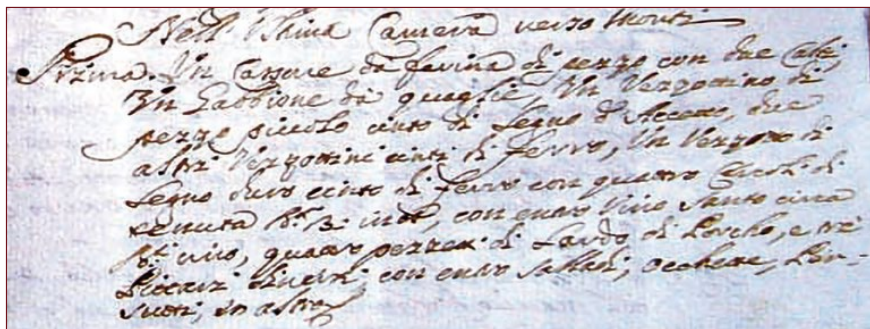 Nell' Ultima Camera verso Monti
Prima. Un Cassone da farina di pezzo con due Calti,
Un Gabbione da quaglie, Un Vezzottino di
pezzo piccolo cinto di Legno d'Accero, due
altri Vezzottini cinti di ferro, Un Vezzotto di
Legno duro cinto di ferro con quattro Cerchi di
tenuta con entro Vino Santo circa
quattro pezze di Lardo di Porcho, e tre
diversi, con entro
in altro